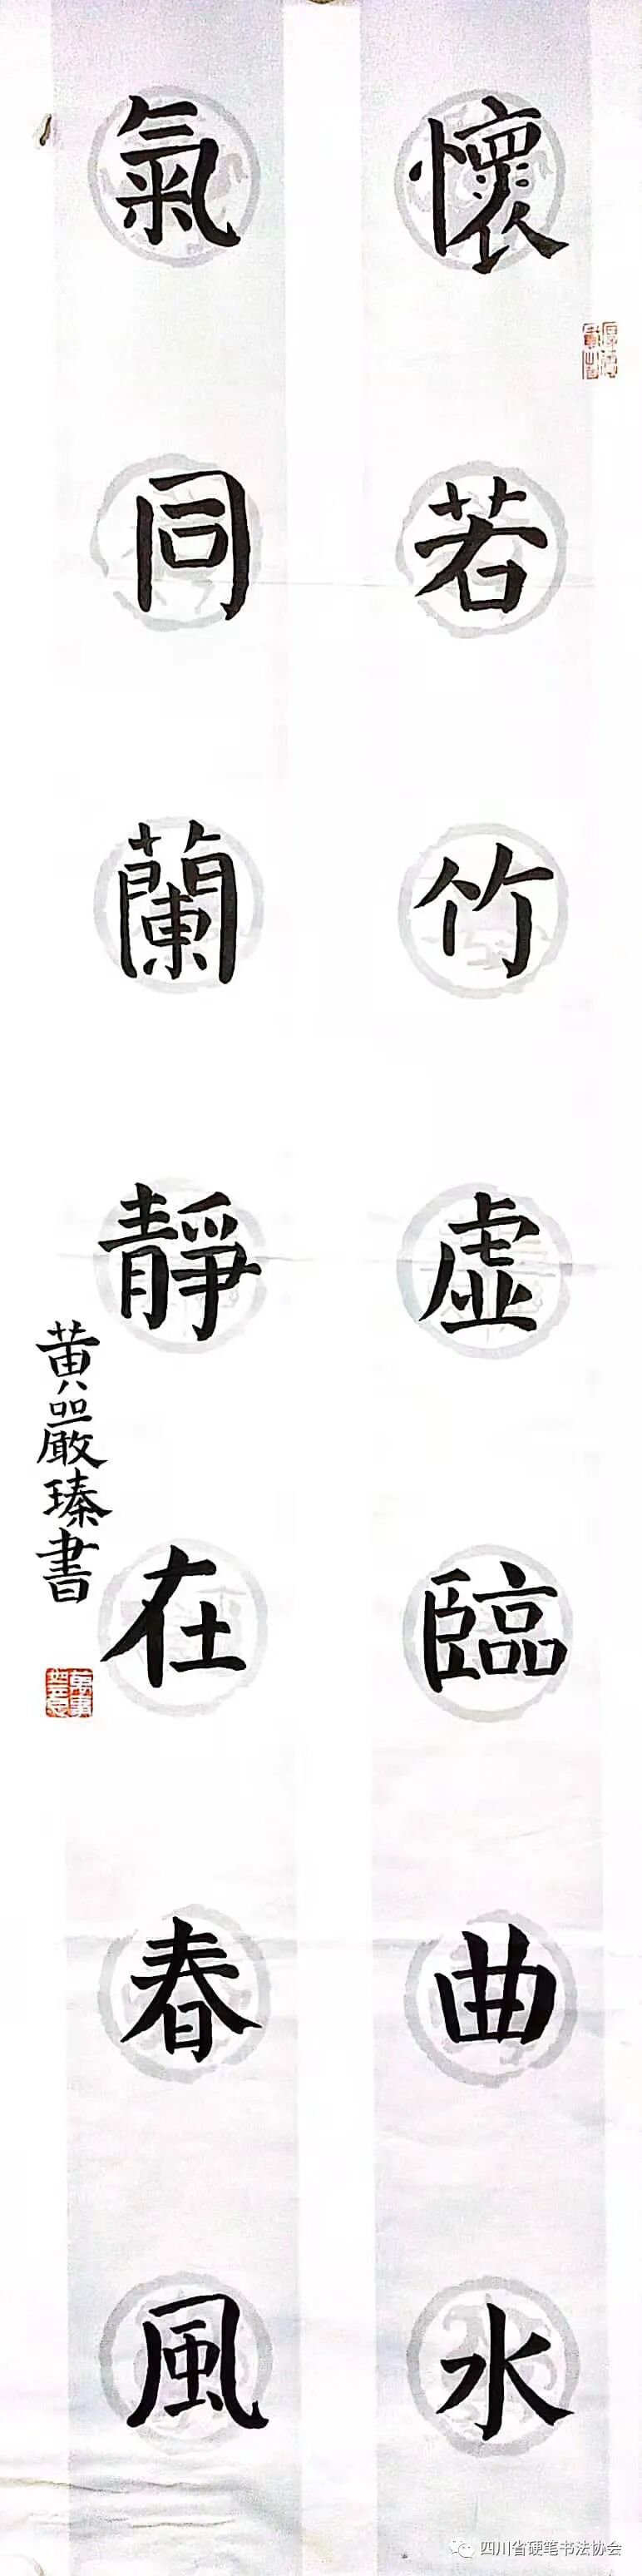 懷若竹虛臨曲水
氣同蘭靜在春風
黃嚴瑧書
四川省硬笔书法协会